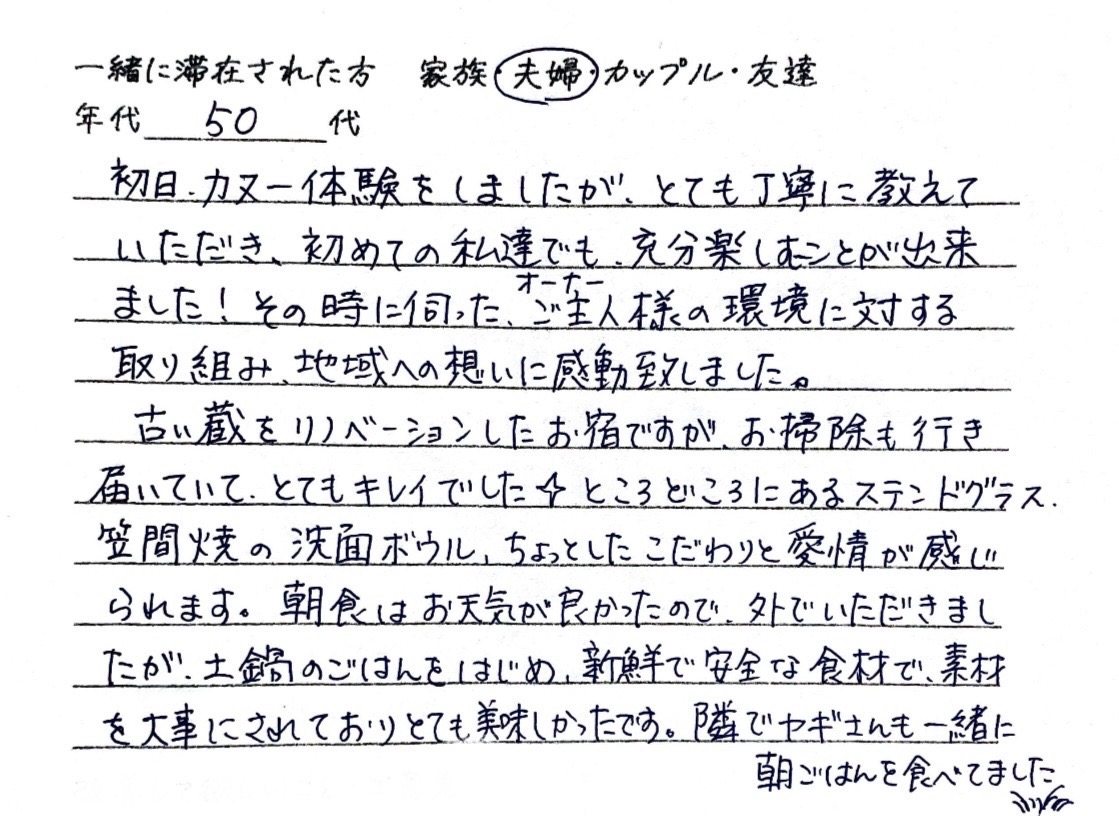 一緒に滞在された方 家族・夫婦・カップル・友達
年代 50 代
初日、カヌー体験をしましたが、とても丁寧に教えて
いただき、初めての私達でも、充分楽しむことが出来
オーナー
ました！その時に伺った、ご主人様の環境に対する
取り組み、地域への想いに感動致しました。
古い蔵をリノベーションしたお宿ですが、お掃除も行き
届いていて、とてもキレイでした☆ところどころにあるステンドグラス、
笠間焼の洗面ボウル、ちょっとしたこだわりと愛情が感じ
られます。朝食はお天気が良かったので、外でいただきまし
たが、土鍋のごはんをはじめ、新鮮で安全な食材で、素材
を大事にされておりとても美味しかったです。隣でヤギさんも一緒に
朝ごはんを食べてました